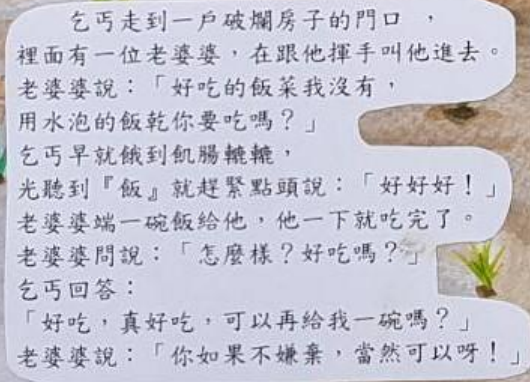 乞丐走到一戶破爛房子的門口，
裡面有一位老婆婆，在跟他揮手叫他進去。
老婆婆說：「好吃的飯菜我沒有，
用水泡的飯乾你要吃嗎？」
乞丐早就餓到飢腸轆轆，
光聽到『飯』就趕緊點頭說：「好好好！」
老婆婆端一碗飯給他，他一下就吃完了。
老婆婆問說：「怎麼樣？好吃嗎？」
乞丐回答：
「好吃，真好吃，可以再給我一碗嗎？」
老婆婆說：「你如果不嫌棄，當然可以呀！」